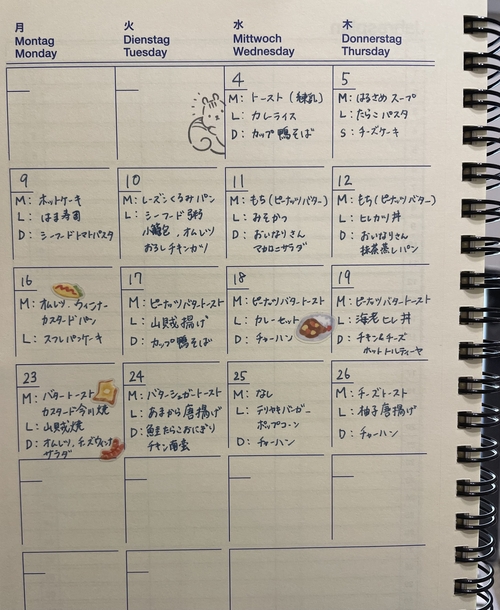 月 火 水 木
Montag Dienstag Mittwoch Donnerstag
Monday Tuesday Wednesday Thursday
4
M: トースト (練乳)
L: カレーライス
D: カップ鴨そば
5
M: はるさめスープ
L: たらこパスタ
S: チーズケーキ
9
M: ホットケーキ
L: はま寿司
D: シーフードトマトパスタ
10
M: レーズンくるみパン
L: シーフード粥
小籠包、オムレツ
おろしチキンカツ
11
M: もち(ピーナッツバター)
L: みそかつ
D: おいなりさん
マカロニサラダ
12
M: もち(ピーナッツバター)
L: ヒレカツ丼
D: おいなりさん
抹茶蒸しパン
16
M: オムレツ、ウィンナー
カスタードパン
L: スフレパンケーキ
17
M: ピーナッツバタートースト
L: 山賊揚げ
D: カップ鴨そば
18
M: ピーナッツバタートースト
L: カレーセット
D: チャーハン
19
M: ピーナッツバタートースト
L: 海老ヒレ丼
D: チキン&チーズ
ホットトルティーヤ
23
M: バタートースト
カスタード今川焼
L: 山賊焼
D: オムレツ、チーズウィンナー
サラダ
24
M: バターシュガートースト
L: あまから唐揚げ
D: 鮭たらこおにぎり
チキン南蛮
25
M: なし
L: テリヤキバーガー
ポップコーン
D: チャーハン
26
M: チーズトースト
L: 柚子唐揚げ
D: チャーハン